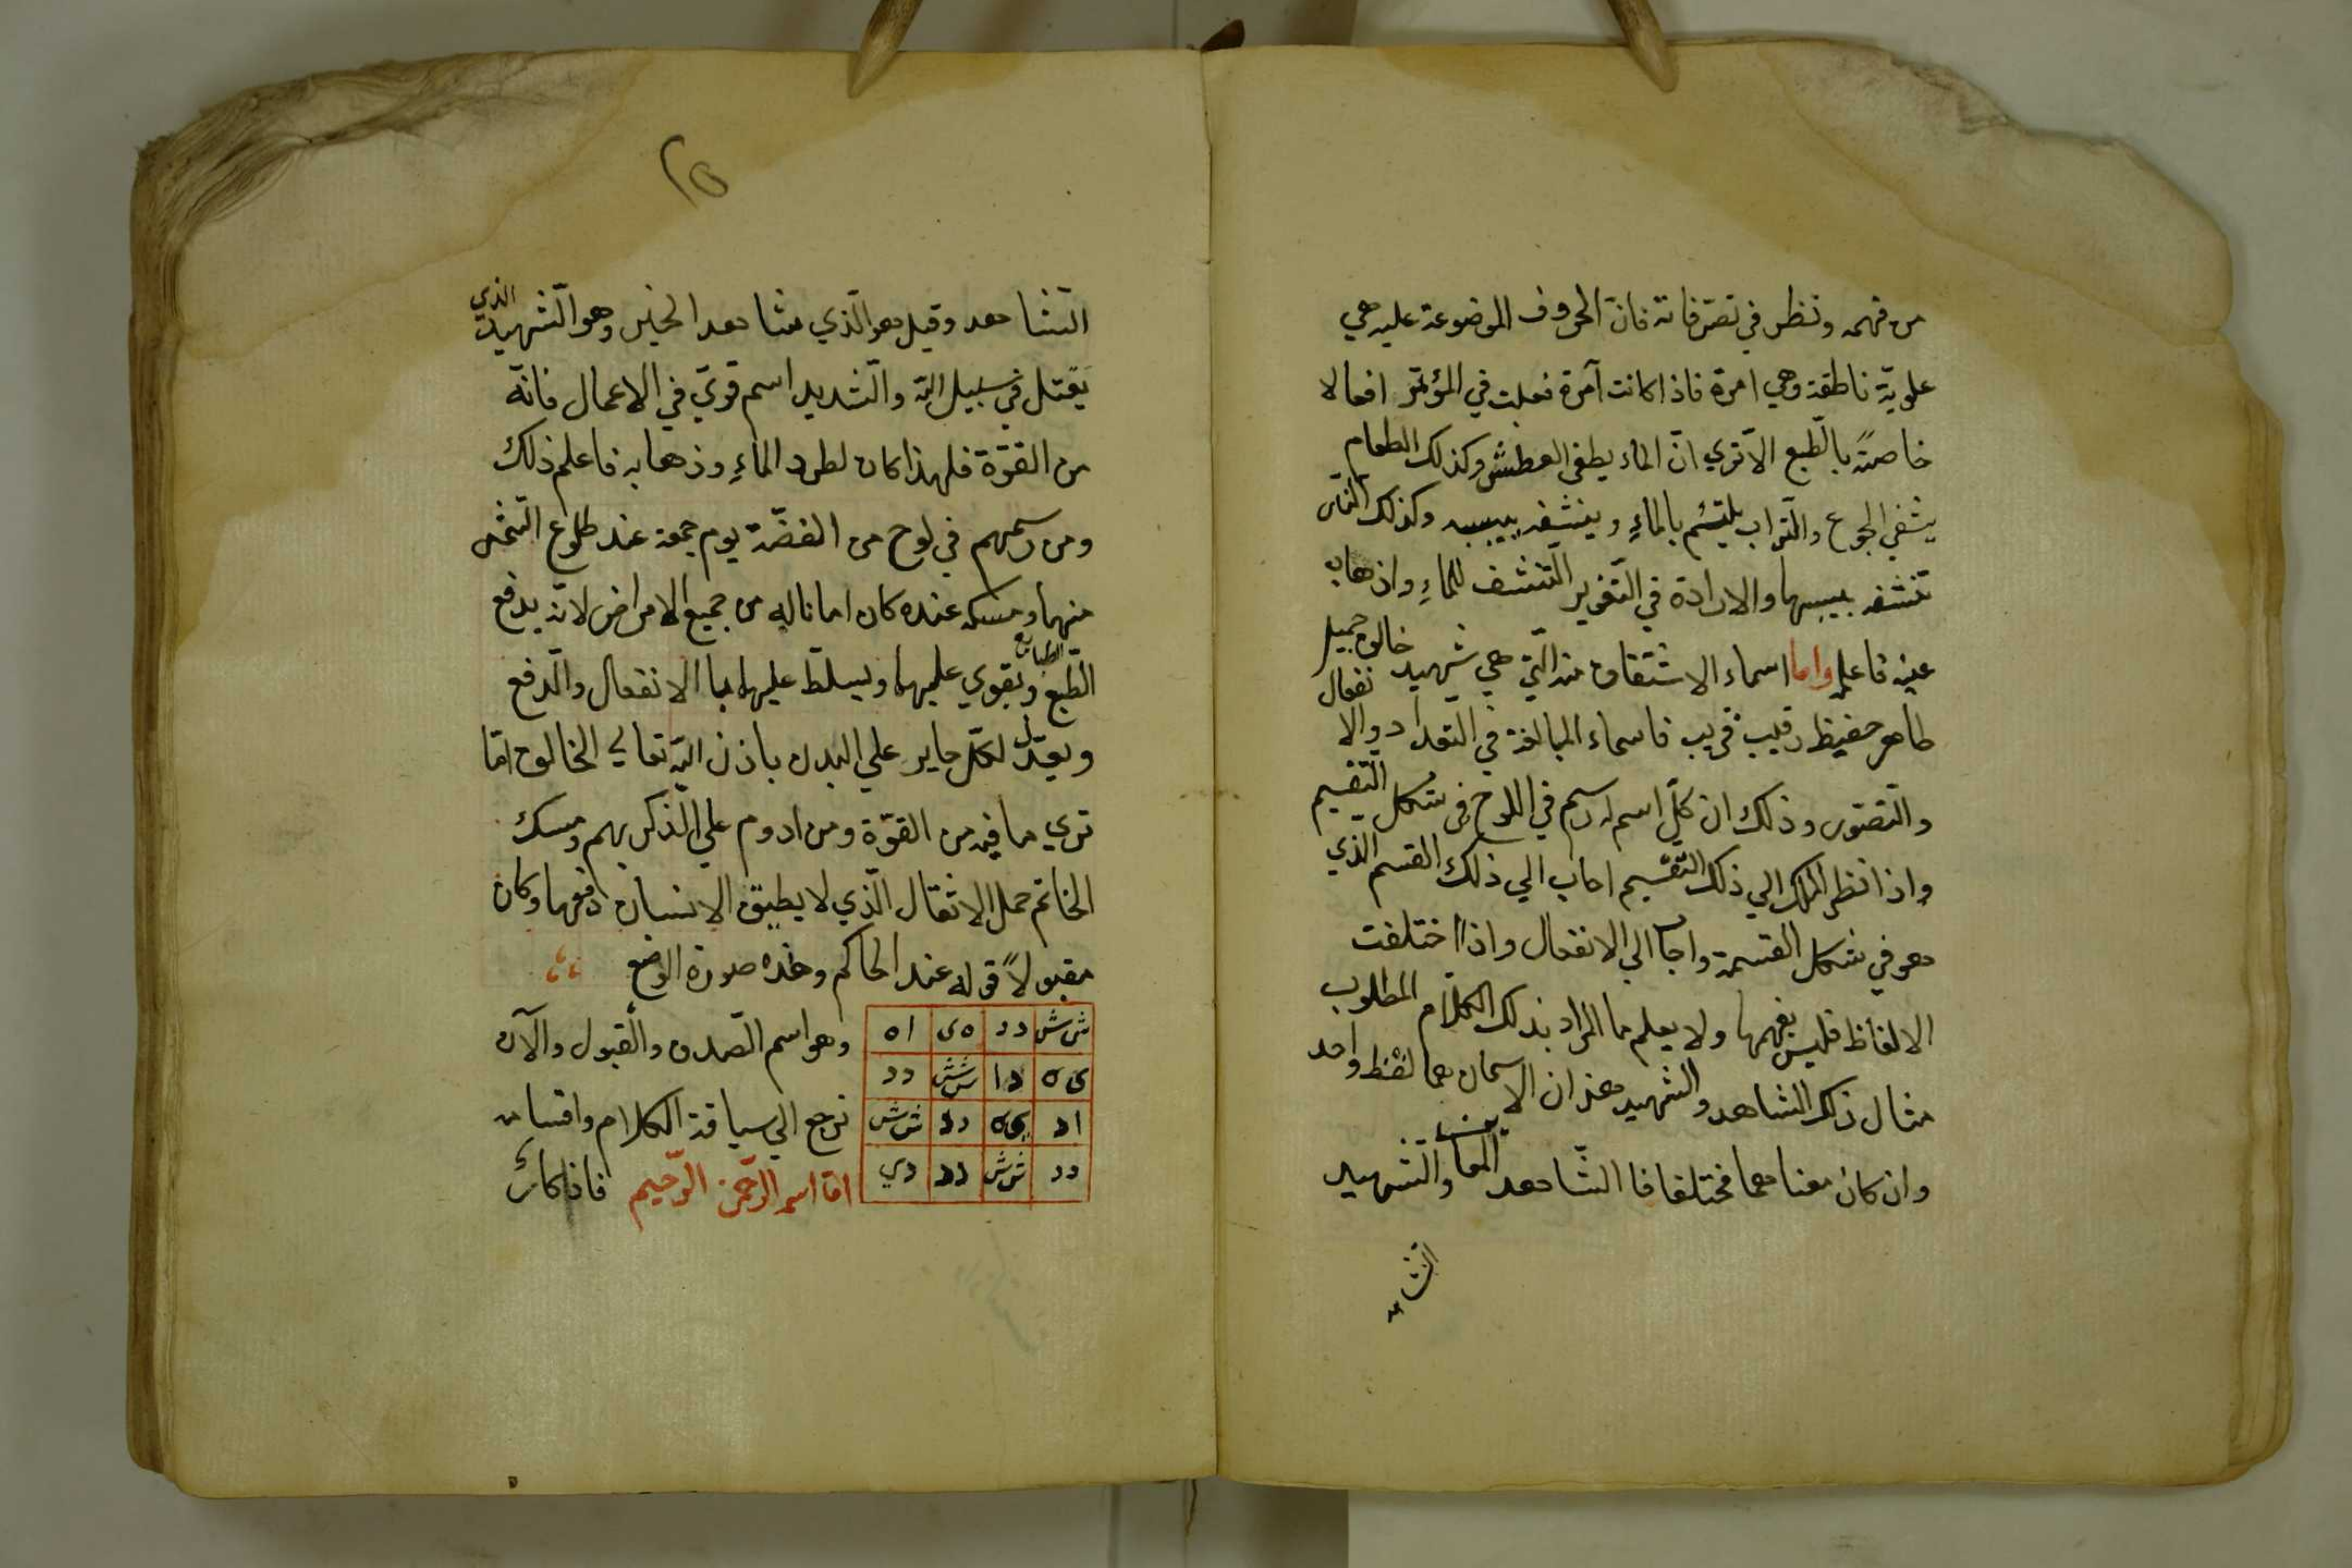 من فهمه ونظر في تصرفاته فانّ الحروف الموضوعة عليه هي
علويّة ناطقة وهي امرة فاذا كانت آمرة فعلت في المؤتمر افعالا
خاصّةً بالطّبع الا تري انّ الماء يطفي العطش وكذلك الطعام
يشفي الجوع والتّراب يلتئم بالماءِ وينشفه بيبسه وكذلك النّار
تنشفه بيبسها والارادة في التّغوير التّنشف للماءِ واذهابه
عنه فاعلم واما اسماء الاشتقاق منه الّتي هي شهيد خالق جميل
طاهر حفيظ رقيب قريب فاسماء المبالغة في التعداد والانفعال
والتّصّور وذلك ان كلّ اسم رسم في اللوح في شكل التّقسيم
واذا نظر الملك الي ذلك التّقسيم اجاب الي ذلك القسم الذي
هو في شكل القسمة واجاب الي الانفعال واذا اختلفت
الالفاظ فليس يفهمها ولا يعلم ما المراد بذلك الكلام المطلوب
مثال ذلك الشاهد والشهيد هذان الاسمان هما لفظ واحد
وان كان معناهما مختلفا فا الشّاهد المعاين والشّهيد
الشاهد
٢٥
الشّاهد وقيل هو الّذي شاهد الخير وهو الشّهيد الذي
يقتل في سبيل اللّه والشديد اسم قويّ في الاعمال فانّه
من القوّة فلهذا كان لطرد الماءِ وذهابه فاعلم ذلك
ومن رسمهم في لوح من الفضّة يوم جمعة عند طلوع الشّمس
منهما ومسكه عنده كان امانا له من جميع الامراض لانّه يدفع
الطّبع الطبائع ويقوي عليها ويسلّط عليها با الانفعال والدّفع
ويعدّل لكلّ جاير علي البدن باذن اللّه تعالي الخالق امّا
تري ما فيه من القوّة ومن ادوم علي الذّكر بهم ومسك
الخاتم حمل الاثقال الّذي لا يطيق الانسان دفعها وكان
مقبولاً قوله عند الحاكم وهذه صورة الوضع
ش ش | د د | ه ى | ا ه
ى ه | د ا | ش ش | د د
ا د | ى ه | د د | ش ش
د د | ش ش | د د | د ي
وهو اسم الصّدق والقبول والآن
نرجع الي سياقة الكلام واقسامه
امّا اسمه الرّحمن الرّحيم فاذا كان